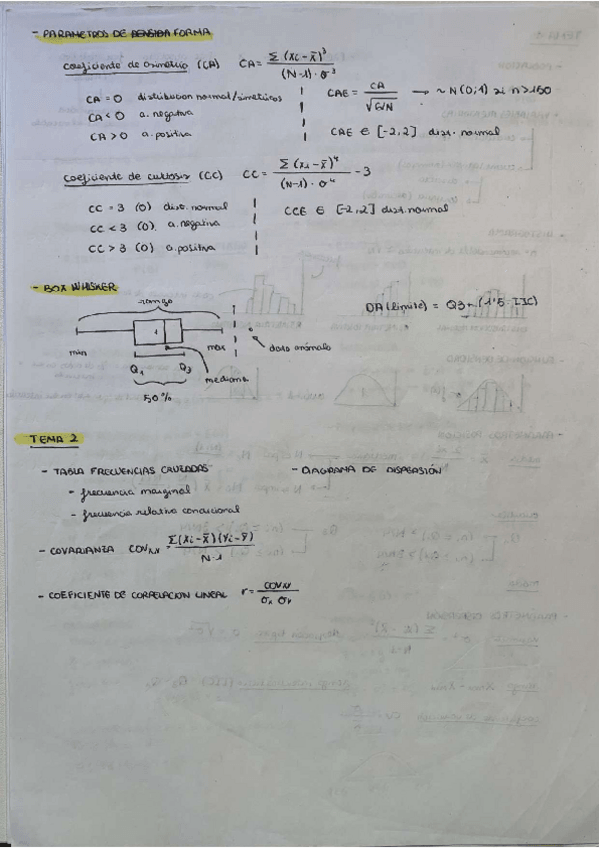 - PARAMETROS DE FORMA
coeficiente de asimetria (CA) CA = Σ(xi - x̄)³ / (N-1)·σ³
CA = 0 distribucion normal/simetricos
CA < 0 a. negativa
CA > 0 a. positiva
CAE = CA / √6/N → ~ N(0,1) si n>150
CAE ∈ [-2,2] dist. normal
coeficiente de curtosis (CC) CC = Σ(xi - x̄)⁴ / (N-1)·σ⁴ - 3
CC = 3 (0) dist. normal
CC < 3 (0) a. negativa
CC > 3 (0) a. positiva
CCE ∈ [-2,2] dist. normal
- BOX WHISKER
rango
min
max
dato anómalo
Q1
Q3
mediana
50%
DA (limite) = Q3 + (1'5 · IIC)
TEMA 2
- TABLA FRECUENCIAS CRUZADAS
- frecuencia marginal
- frecuencia relativa condicional
- DIAGRAMA DE DISPERSIÓN
- COVARIANZA COVxy = Σ(xi - x̄)(yi - ȳ) / N-1
- COEFICIENTE DE CORRELACION LINEAL r = COVxy / σx σy